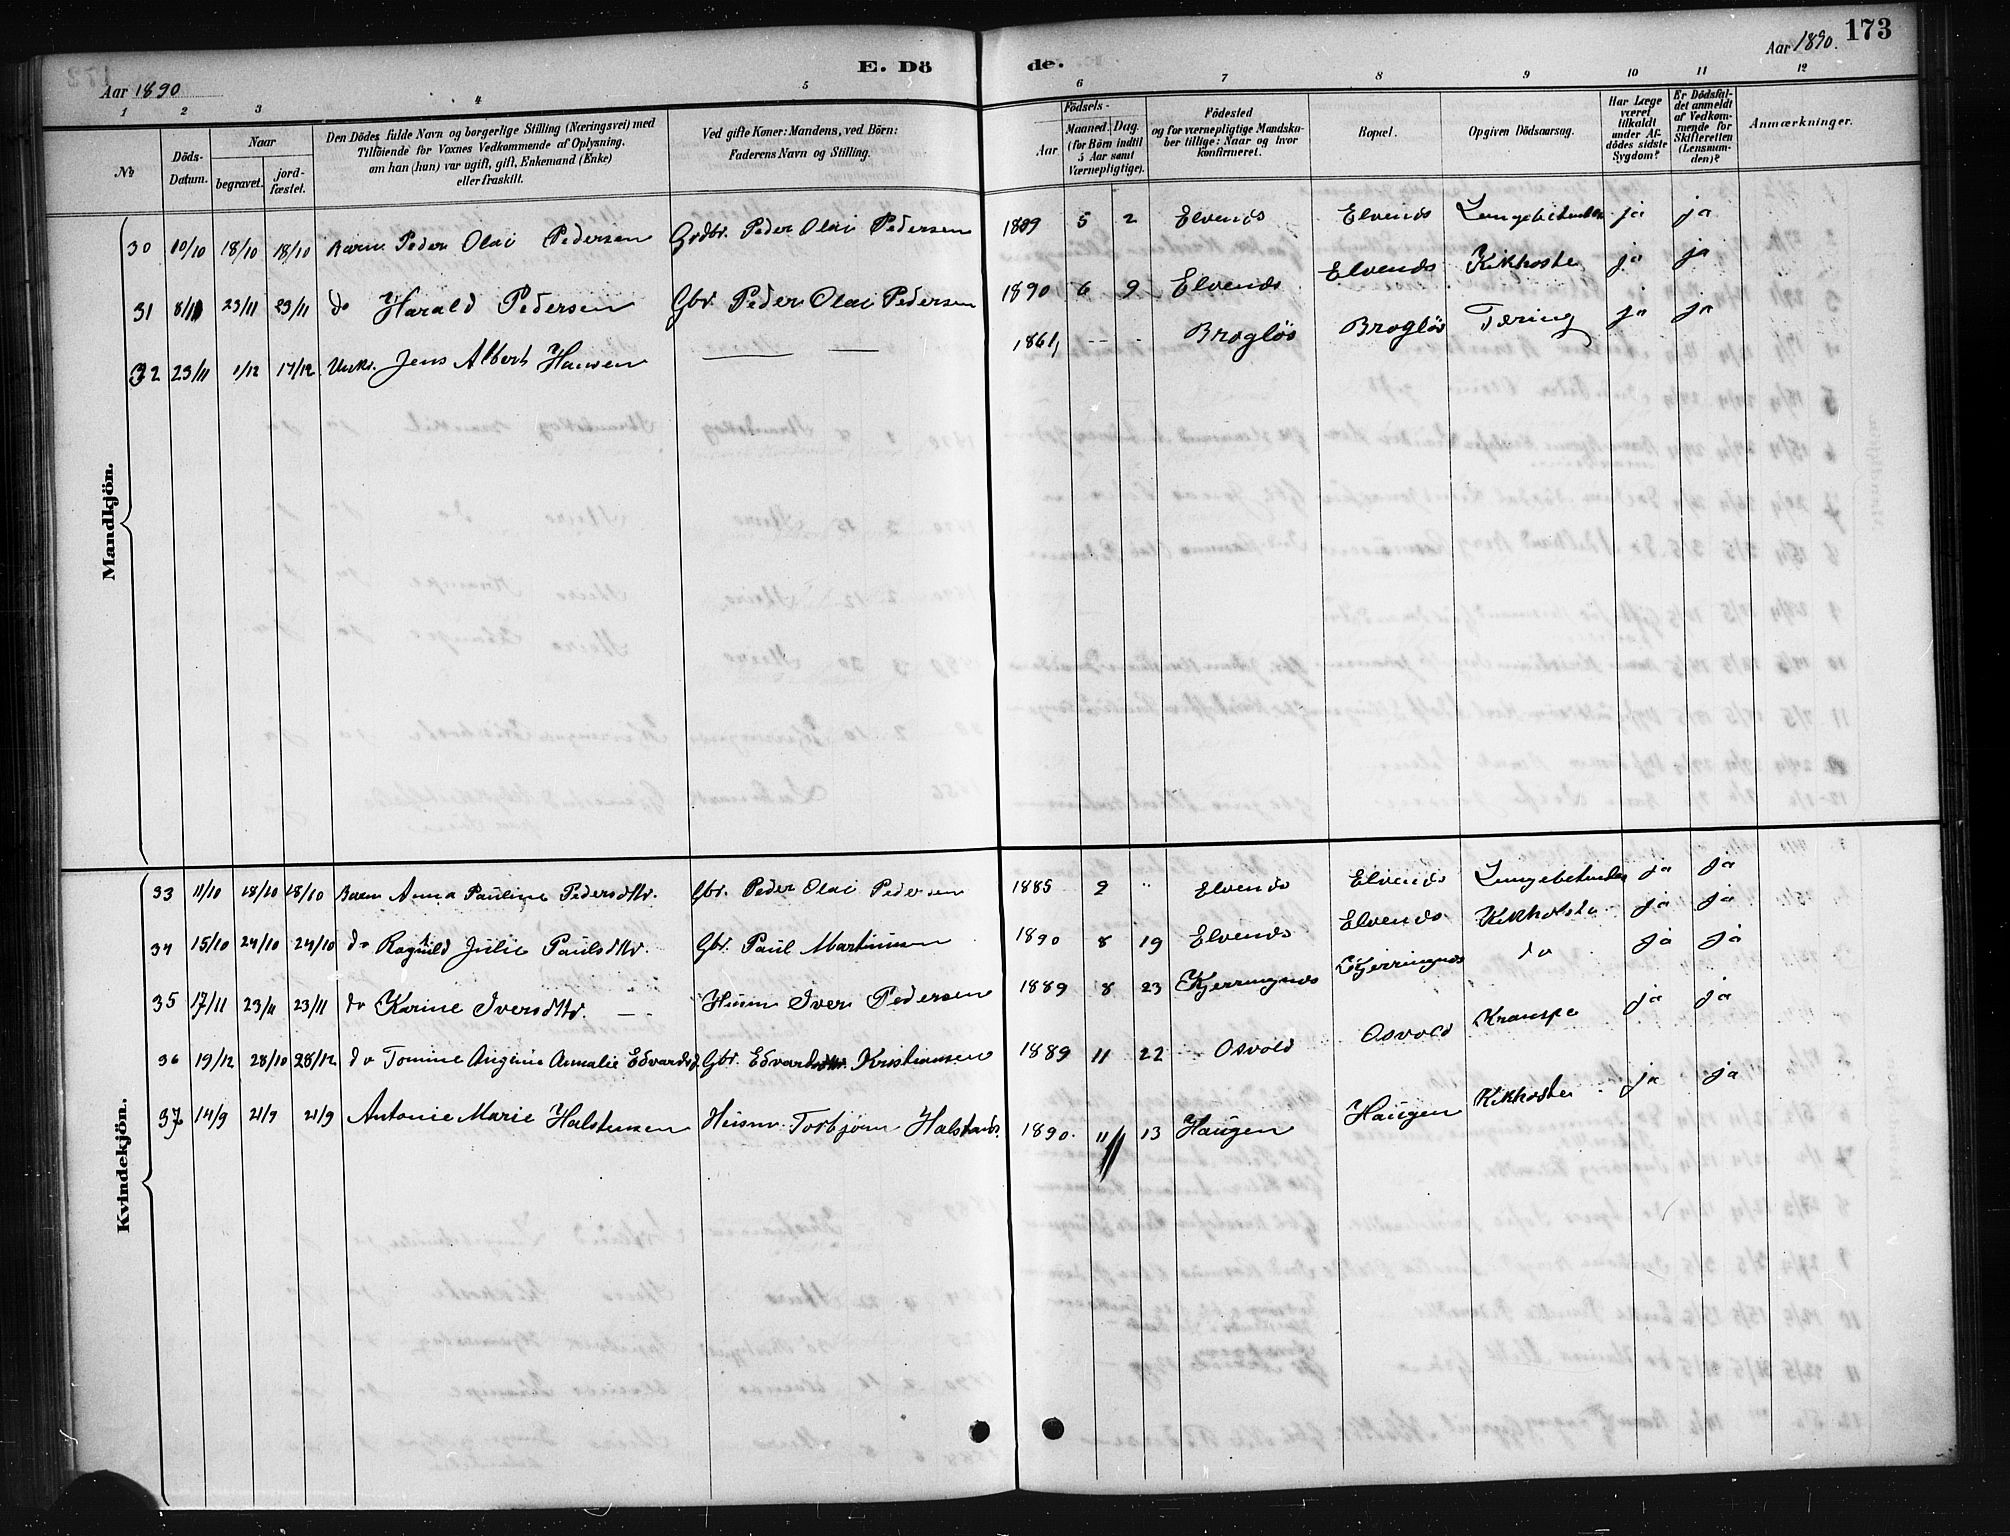 Aar 1890
E. Dö
de.
Aar 1890.
173
1 2 3 4 5 6 7 8 9 10 11 12
No
Döds-Datum.
Naar
begravet. jord-fæstet.
Den Dödes fulde Navn og borgerlige Stilling (Næringsvei) med
Tilföiende for Voxnes Vedkommende af Oplysning,
om han (hun) var ugift, gift, Enkemand (Enke)
eller fraskilt.
Ved gifte Koner: Mandens, ved Börn:
Faderens Navn og Stilling.
Födsels-
Aar. Maaned. Dag.
(for Börn indtil
5 Aar samt
Værnepligtige).
Födested
og for værnepligtige Mandska-
ber tillige: Naar og hvor
konfirmeret.
Bopæl.
Opgiven Dödsaarsag.
Har Læge
været
tilkaldt
under Af-
dödes sidste
Sygdom?
Er Dödsfal-
det anmeldt
af Vedkom-
mende for
Skifteretten
(Lensman-
den)?
Anmærkninger.
Mandkjön.
30 10/10 18/10 18/10 Barn Peder Olai Pedersen Grdbr. Peder Olai Pedersen 1889 5 2 Elvenes Elvenes Lungebetendes ja ja
31 8/11 23/11 23/11 do Harald Pedersen Gbr. Peder Olai Pedersen 1890 6 9 Elvenes Elvenes Kikhoste ja ja
32 23/11 1/12 17/12 Jens Albert Hansen — — 1861 - - Brogløs Brogløs Tæring ja ja
Kvindekjön.
33 11/10 18/10 18/10 Barn Anna Pauline Pedersdtr. Gbr. Peder Olai Pedersen 1885 2 " Elvenes Elvenes Lungebetendes ja ja
34 15/10 24/10 24/10 do Ragnild Julie Paulsdtr. Gbr. Paul Martinusen 1890 8 19 Elvenes Elvenes Kikhoste ja ja
35 17/11 23/11 23/11 do Karine Iversdtr. Husm Iver Pedersen 1889 8 23 Kjerringnes Kjerringnes do ja ja
36 19/12 28/10 28/12 do Tomine Angine Annalie Edvardsd. Gbr. Edvard Kristiansen 1889 11 22 Osvold Osvold Krampe ja ja
37 14/9 21/9 21/9 Antonie Marie Halstensen Husm. Torbjørn Halstends. 1890. 11 13 Haugen Haugen Kikhoste ja ja